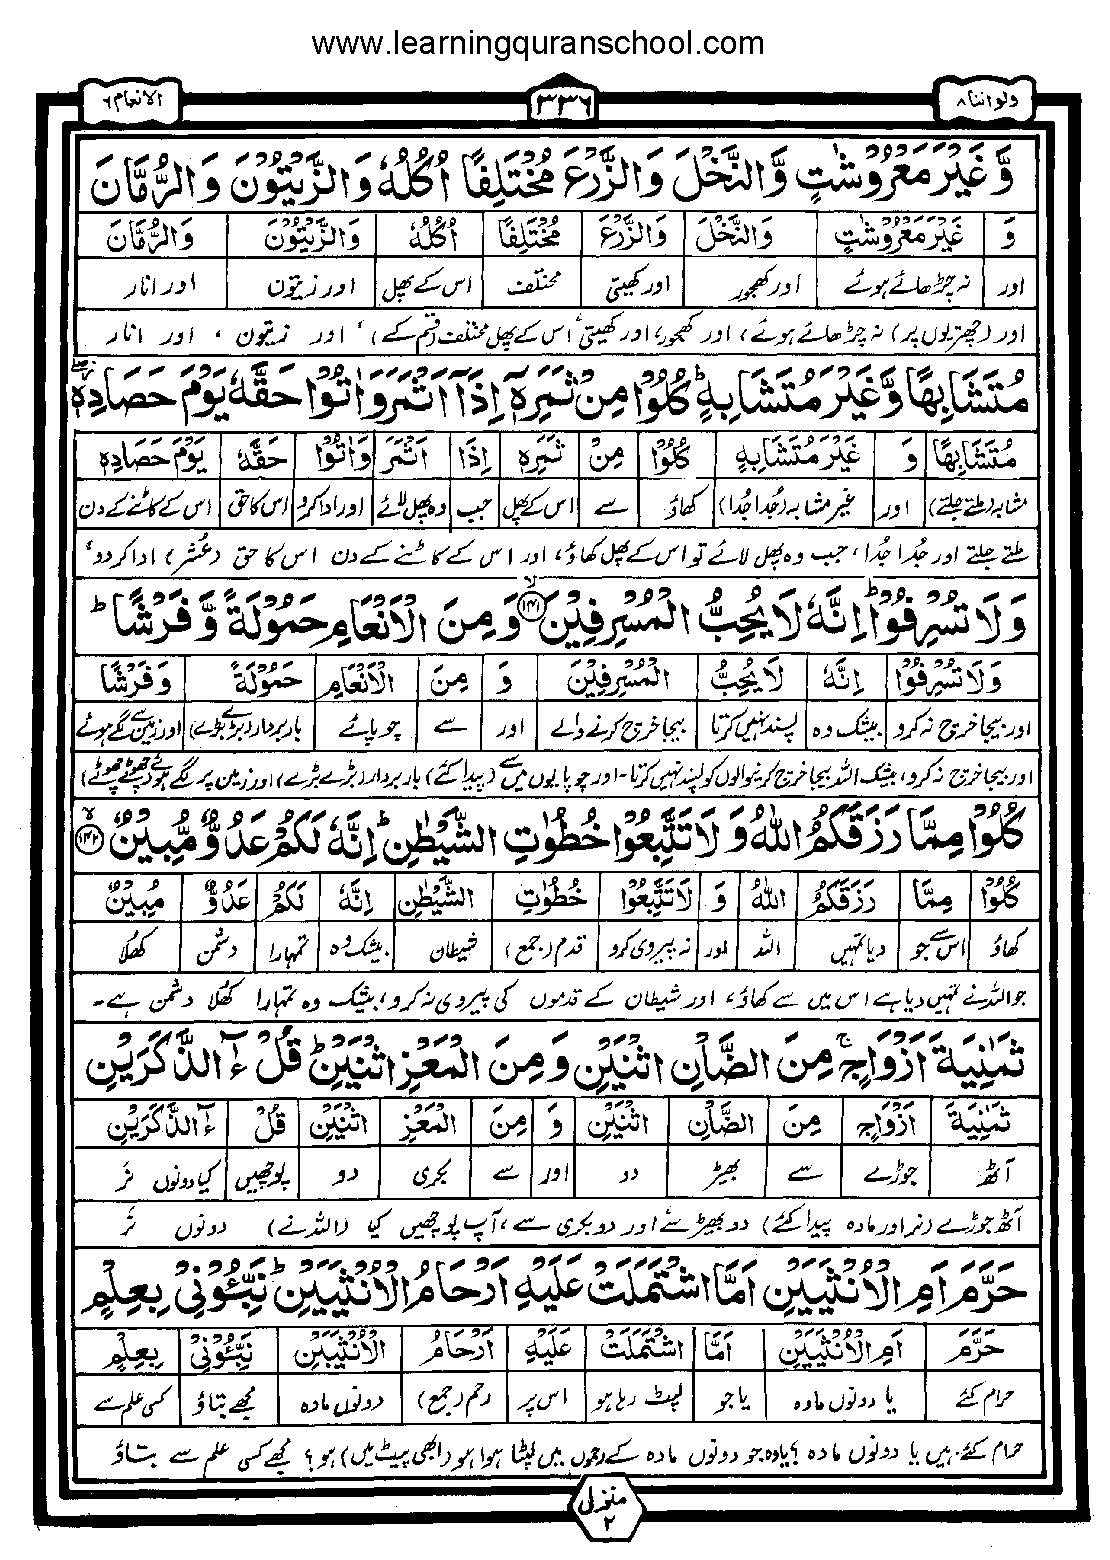 www.learningquranschool.com
الانعام ٦
٣٣٦
ولواننا ٨
وَّ غَيْرَ مَعْرُوْشٰتٍ وَّ النَّخْلَ وَ الزَّرْعَ مُخْتَلِفًا اُكُلُهٗ وَ الزَّيْتُوْنَ وَ الرُّمَّانَ
وَ غَيْرَ مَعْرُوْشٰتٍ وَالنَّخْلَ وَالزَّرْعَ مُخْتَلِفًا اُكُلُهٗ وَالزَّيْتُوْنَ وَالرُّمَّانَ
اور نہ چڑھائے ہوئے اور کھجور اور کھیتی مختلف اس کے پھل اور زیتون اور انار
اور (چھتریوں پر) نہ چڑھائے ہوئے، اور کھجور، اور کھیتی، اس کے پھل مختلف (قسم کے) ، اور زیتون ، اور انار
مُتَشَابِهًا وَّ غَيْرَ مُتَشَابِهٍ ؕ كُلُوْا مِنْ ثَمَرِهٖۤ اِذَاۤ اَثْمَرَ وَ اٰتُوْا حَقَّهٗ يَوْمَ حَصَادِهٖ
مُتَشَابِهًا وَ غَيْرَ مُتَشَابِهٍ كُلُوْا مِنْ ثَمَرِهٖ اِذَا اَثْمَرَ وَاٰتُوْا حَقَّهٗ يَوْمَ حَصَادِهٖ
مشابہ (ملتے جلتے) اور غیر مشابہ (جُدا جُدا) کھاؤ سے اس کے پھل جب وہ پھل لائے اور ادا کرو اس کا حق اس کے کاٹنے کے دن
ملتے جلتے اور جُدا جُدا، جب وہ پھل لائے تو اس کے پھل کھاؤ، اور اس کے کاٹنے کے دن اس کا حق (عُشر) ادا کر دو،
وَ لَا تُسْرِفُوْا ؕ اِنَّهٗ لَا يُحِبُّ الْمُسْرِفِيْنَ ۙ۱۴۱ وَ مِنَ الْاَنْعَامِ حَمُوْلَةً وَّ فَرْشًا ؕ
وَلَا تُسْرِفُوْا اِنَّهٗ لَا يُحِبُّ الْمُسْرِفِيْنَ وَ مِنَ الْاَنْعَامِ حَمُوْلَةً وَفَرْشًا
اور بیجا خرچ نہ کرو بیشک وہ پسند نہیں کرتا بیجا خرچ کرنے والے اور سے چوپائے باربردار (بڑے بڑے) اور زمین سے لگے ہوئے
اور بیجا خرچ نہ کرو، بیشک اللہ بیجا خرچ کرنیوالوں کو پسند نہیں کرتا۔ اور چوپایوں میں سے (پیدا کئے) باربردار (بڑے بڑے) اور زمین پر لگے ہوئے (چھوٹے چھوٹے)
كُلُوْا مِمَّا رَزَقَكُمُ اللّٰهُ وَ لَا تَتَّبِعُوْا خُطُوٰتِ الشَّيْطٰنِ ؕ اِنَّهٗ لَكُمْ عَدُوٌّ مُّبِيْنٌ ۙ۱۴۲
كُلُوْا مِمَّا رَزَقَكُمُ اللّٰهُ وَ لَا تَتَّبِعُوْا خُطُوٰتِ الشَّيْطٰنِ اِنَّهٗ لَكُمْ عَدُوٌّ مُبِيْنٌ
کھاؤ اس سے جو دیا تمہیں اللہ اور نہ پیروی کرو قدم (جمع) شیطان بیشک وہ تمہارا دشمن کھُلا
جو اللہ نے تمہیں دیا ہے اس میں سے کھاؤ، اور شیطان کے قدموں کی پیروی نہ کرو، بیشک وہ تمہارا کھُلا دشمن ہے۔
ثَمٰنِيَةَ اَزْوَاجٍ ۚ مِنَ الضَّاْنِ اثْنَيْنِ وَ مِنَ الْمَعْزِ اثْنَيْنِ ؕ قُلْ ءٰٓالذَّكَرَيْنِ
ثَمٰنِيَةَ اَزْوَاجٍ مِنَ الضَّاْنِ اثْنَيْنِ وَ مِنَ الْمَعْزِ اثْنَيْنِ قُلْ ءٰٓالذَّكَرَيْنِ
آٹھ جوڑے سے بھیڑ دو اور سے بکری دو پوچھیں کیا دونوں نر
آٹھ جوڑے (نر اور مادہ پیدا کئے) دو بھیڑ سے اور دو بکری سے، آپ پوچھیں کیا (اللہ نے) دونوں نر
حَرَّمَ اَمِ الْاُنْثَيَيْنِ اَمَّا اشْتَمَلَتْ عَلَيْهِ اَرْحَامُ الْاُنْثَيَيْنِ ؕ نَبِّـُٔوْنِيْ بِعِلْمٍ
حَرَّمَ اَمِ الْاُنْثَيَيْنِ اَمَّا اشْتَمَلَتْ عَلَيْهِ اَرْحَامُ الْاُنْثَيَيْنِ نَبِّـُٔوْنِيْ بِعِلْمٍ
حرام کئے یا دونوں مادہ یا جو لپٹ رہا ہو اس پر رحم (جمع) دونوں مادہ مجھے بتاؤ کسی علم سے
حرام کئے ہیں یا دونوں مادہ؟ یا وہ جو دونوں مادہ کے رحموں میں لپٹا ہوا ہو (ابھی پیٹ میں) ہو؟ مجھے کسی علم سے بتاؤ
منزل ٢